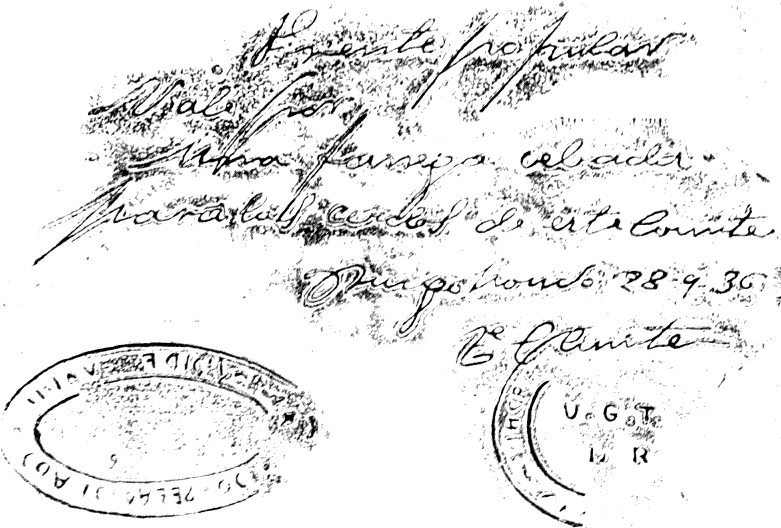 Frente popular
Vale por
Una fanega cebada
para los cerdos de este Comite
Burgohondo 28-9-36
El Comite
U.G.T.